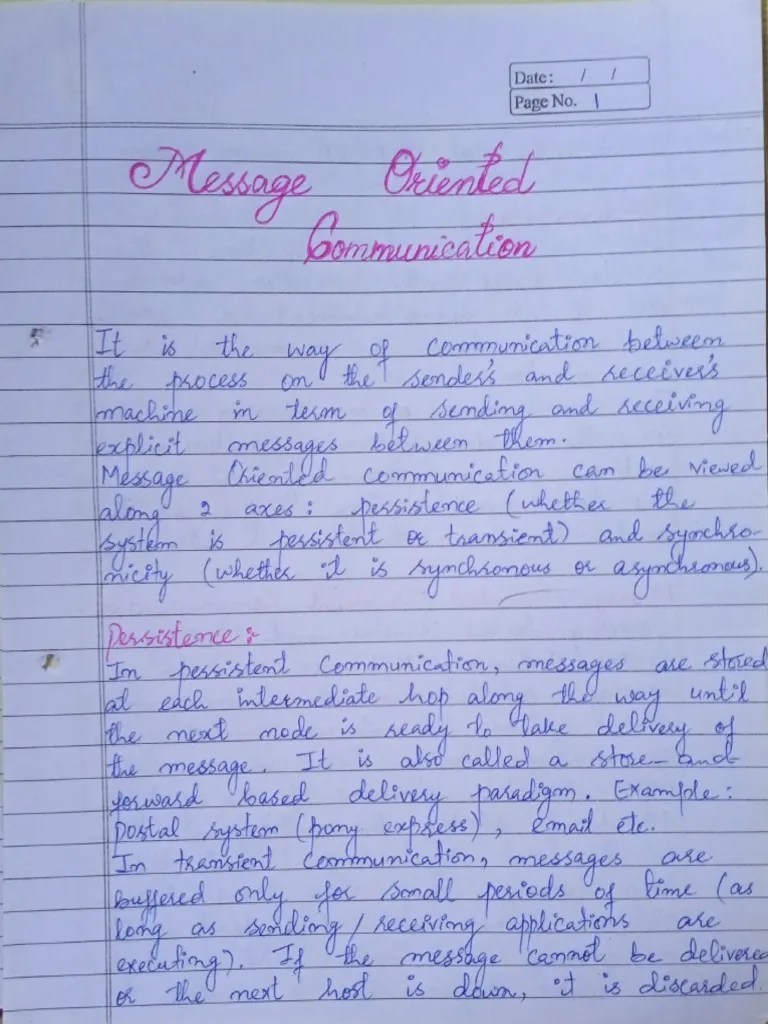 Date: / /
Page No. 1
Message Oriented
Communication
It is the way of communication between
the process on the sender's and receiver's
machine in term of sending and receiving
explicit messages between them.
Message Oriented communication can be viewed
along 2 axes: persistence (whether the
system is persistent or transient) and synchro-
nicity (whether it is synchronous or asynchronous).
Persistence :-
In persistent communication, messages are stored
at each intermediate hop along the way until
the next node is ready to take delivery of
the message. It is also called a store-and-
forward based delivery paradigm. Example:
Postal system (pony express), email etc.
In transient communication, messages are
buffered only for small periods of time (as
long as sending/receiving applications are
executing). If the message cannot be delivered
or the next host is down, it is discarded.